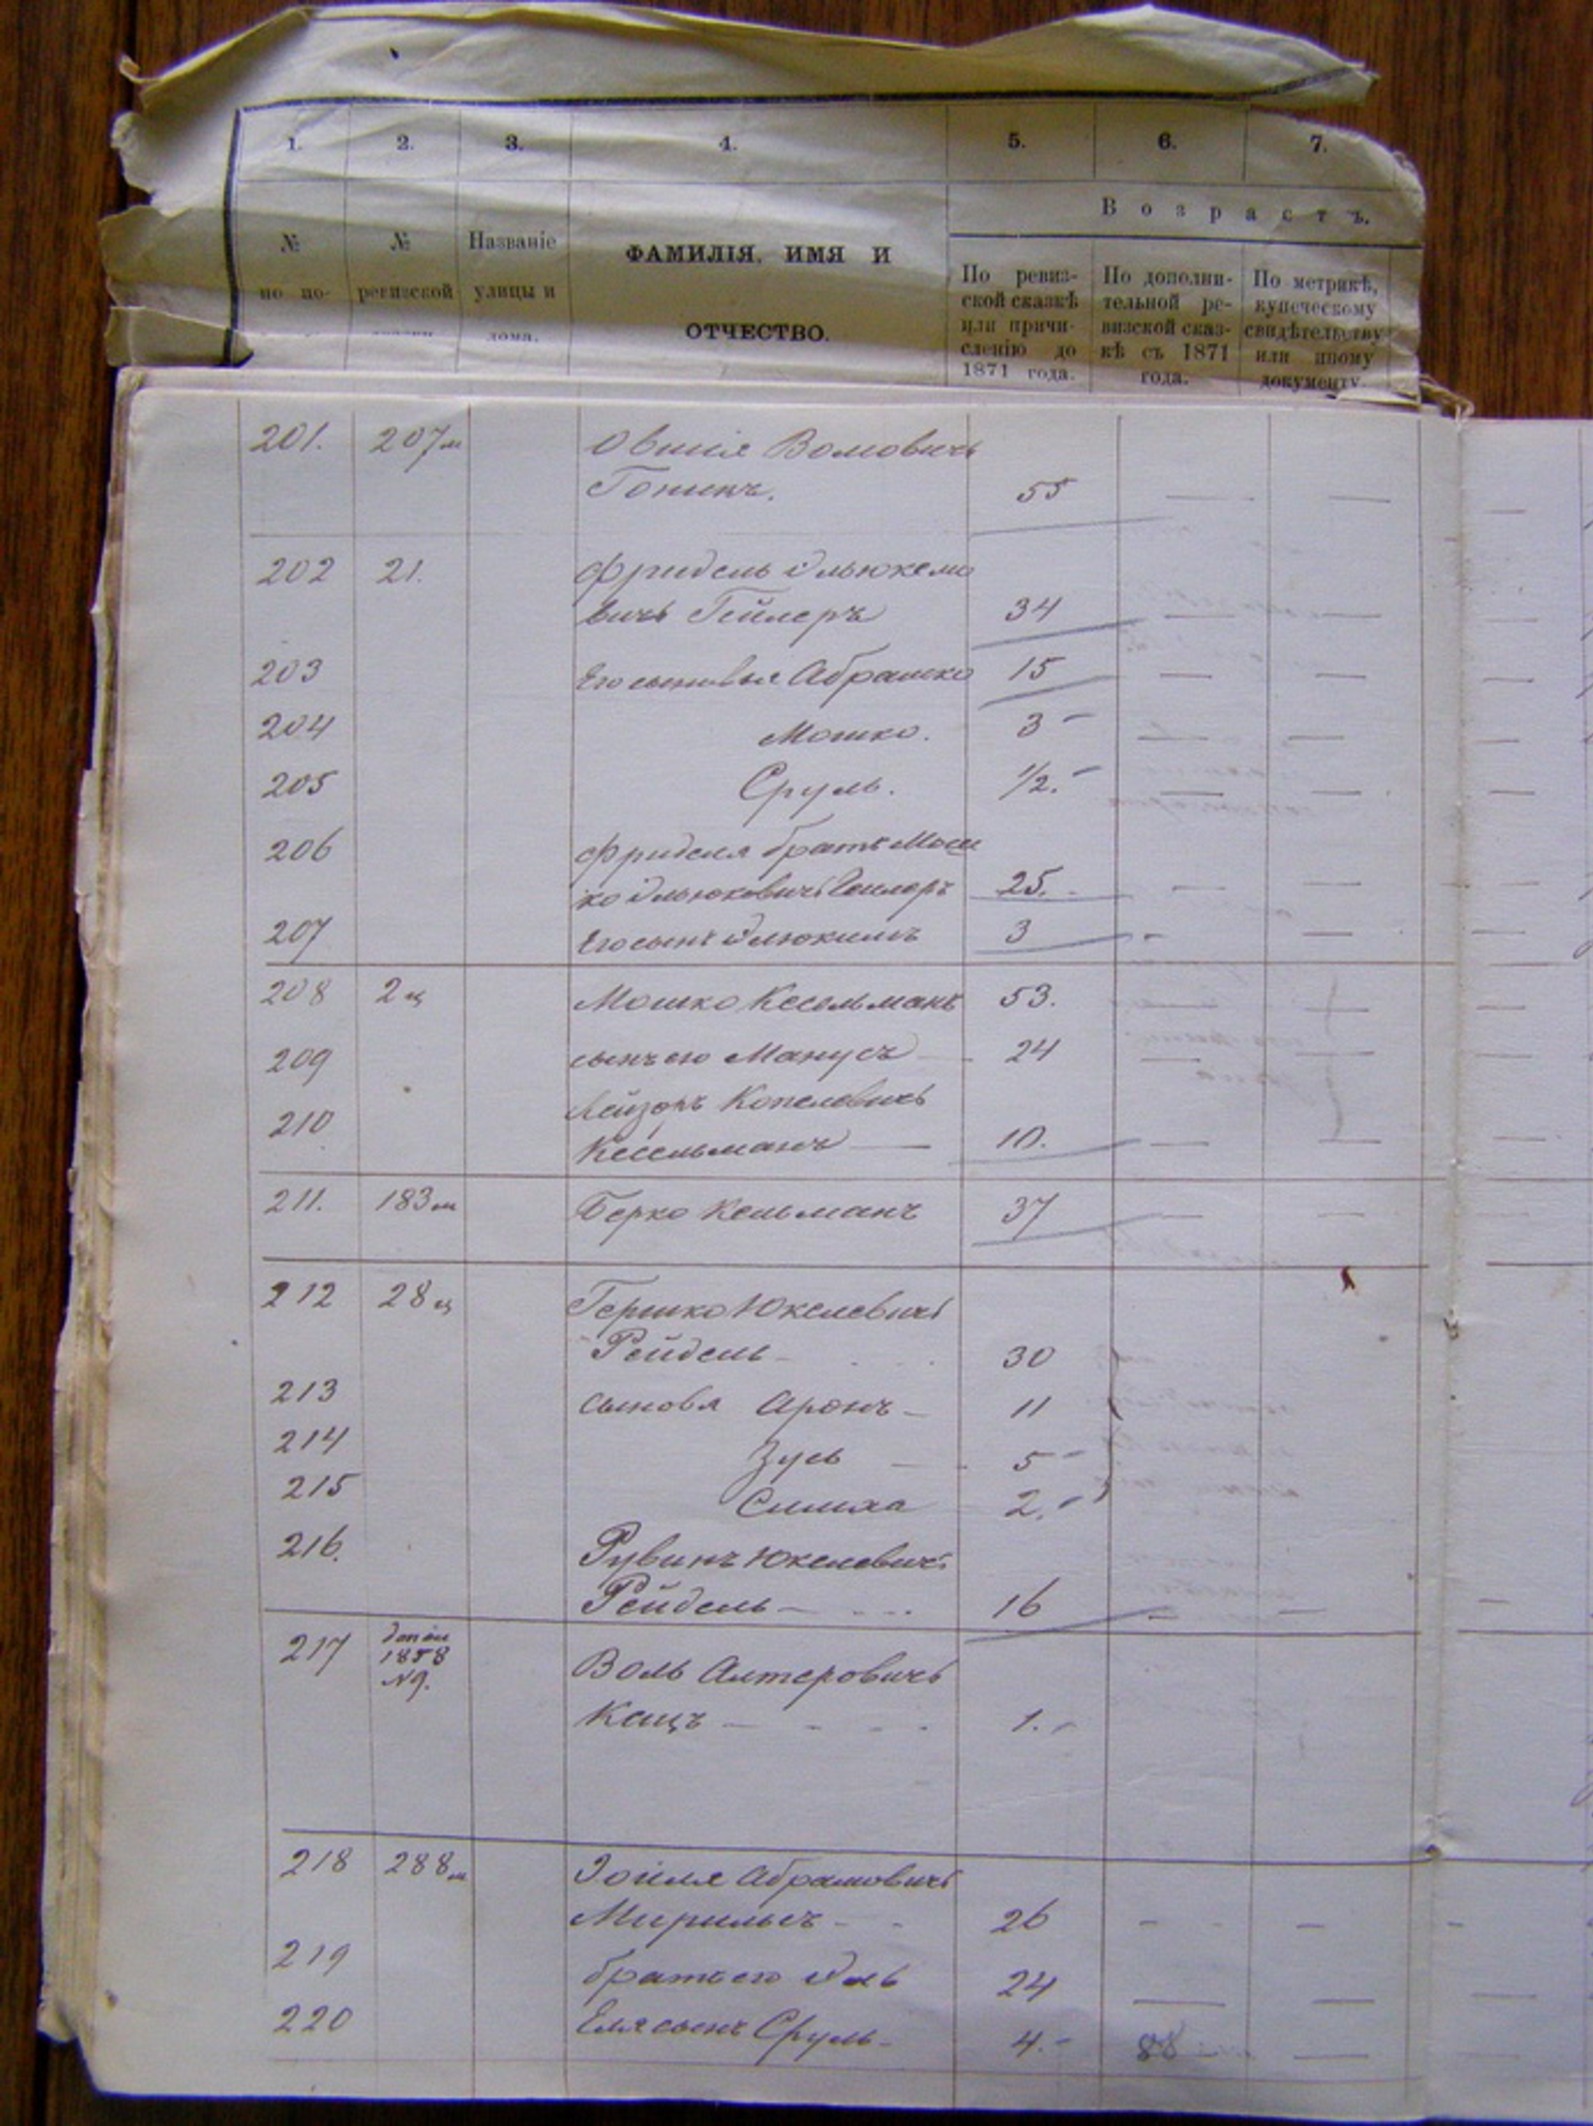 1. 2. 3. 4. 5. 6. 7.
Возрастъ.
№ № Названіе ФАМИЛІЯ, ИМЯ И
по по- ревизской улицы и
дома. ОТЧЕСТВО.
По ревиз- По дополни- По метрикѣ,
ской сказкѣ тельной ре- купеческому
или причи- визской сказ- свидѣтельству
сленію до кѣ съ 1871 или иному
1871 года. года. документу.
201. 207м Овшія Волковичъ
55
202 21. Фридель
вичъ Гейлеръ 34
203 Его сыновья Абрамко 15
204 Мошко. 3 -
205 Сруль. 1/2. -
206 Фриделя братъ Мош
ко 25. -
207 Его сынъ 3 -
208 2ц Мошко Кесельманъ 53.
209 сынъ его Манусъ — 24 —
210 Лейзоръ Копелевичъ
Кесельманъ — 10. —
211. 183м Берко Кельманъ 37 — —
212 28ц Гершко Юкелевичъ
Рейдель - 30
213 сыновья Аронъ - 11
214 Зусь — 5 -
215 Симха 2. -
216. Рувинъ Юкелевичъ
Рейдель - 16 — —
217 1858
№9. Воль Алтеровичъ
Кацъ — 1. -
218 288м Абрамовичъ
26 - -
219 братъ его 24 — —
220 сынъ Сруль - 4. - 88 —